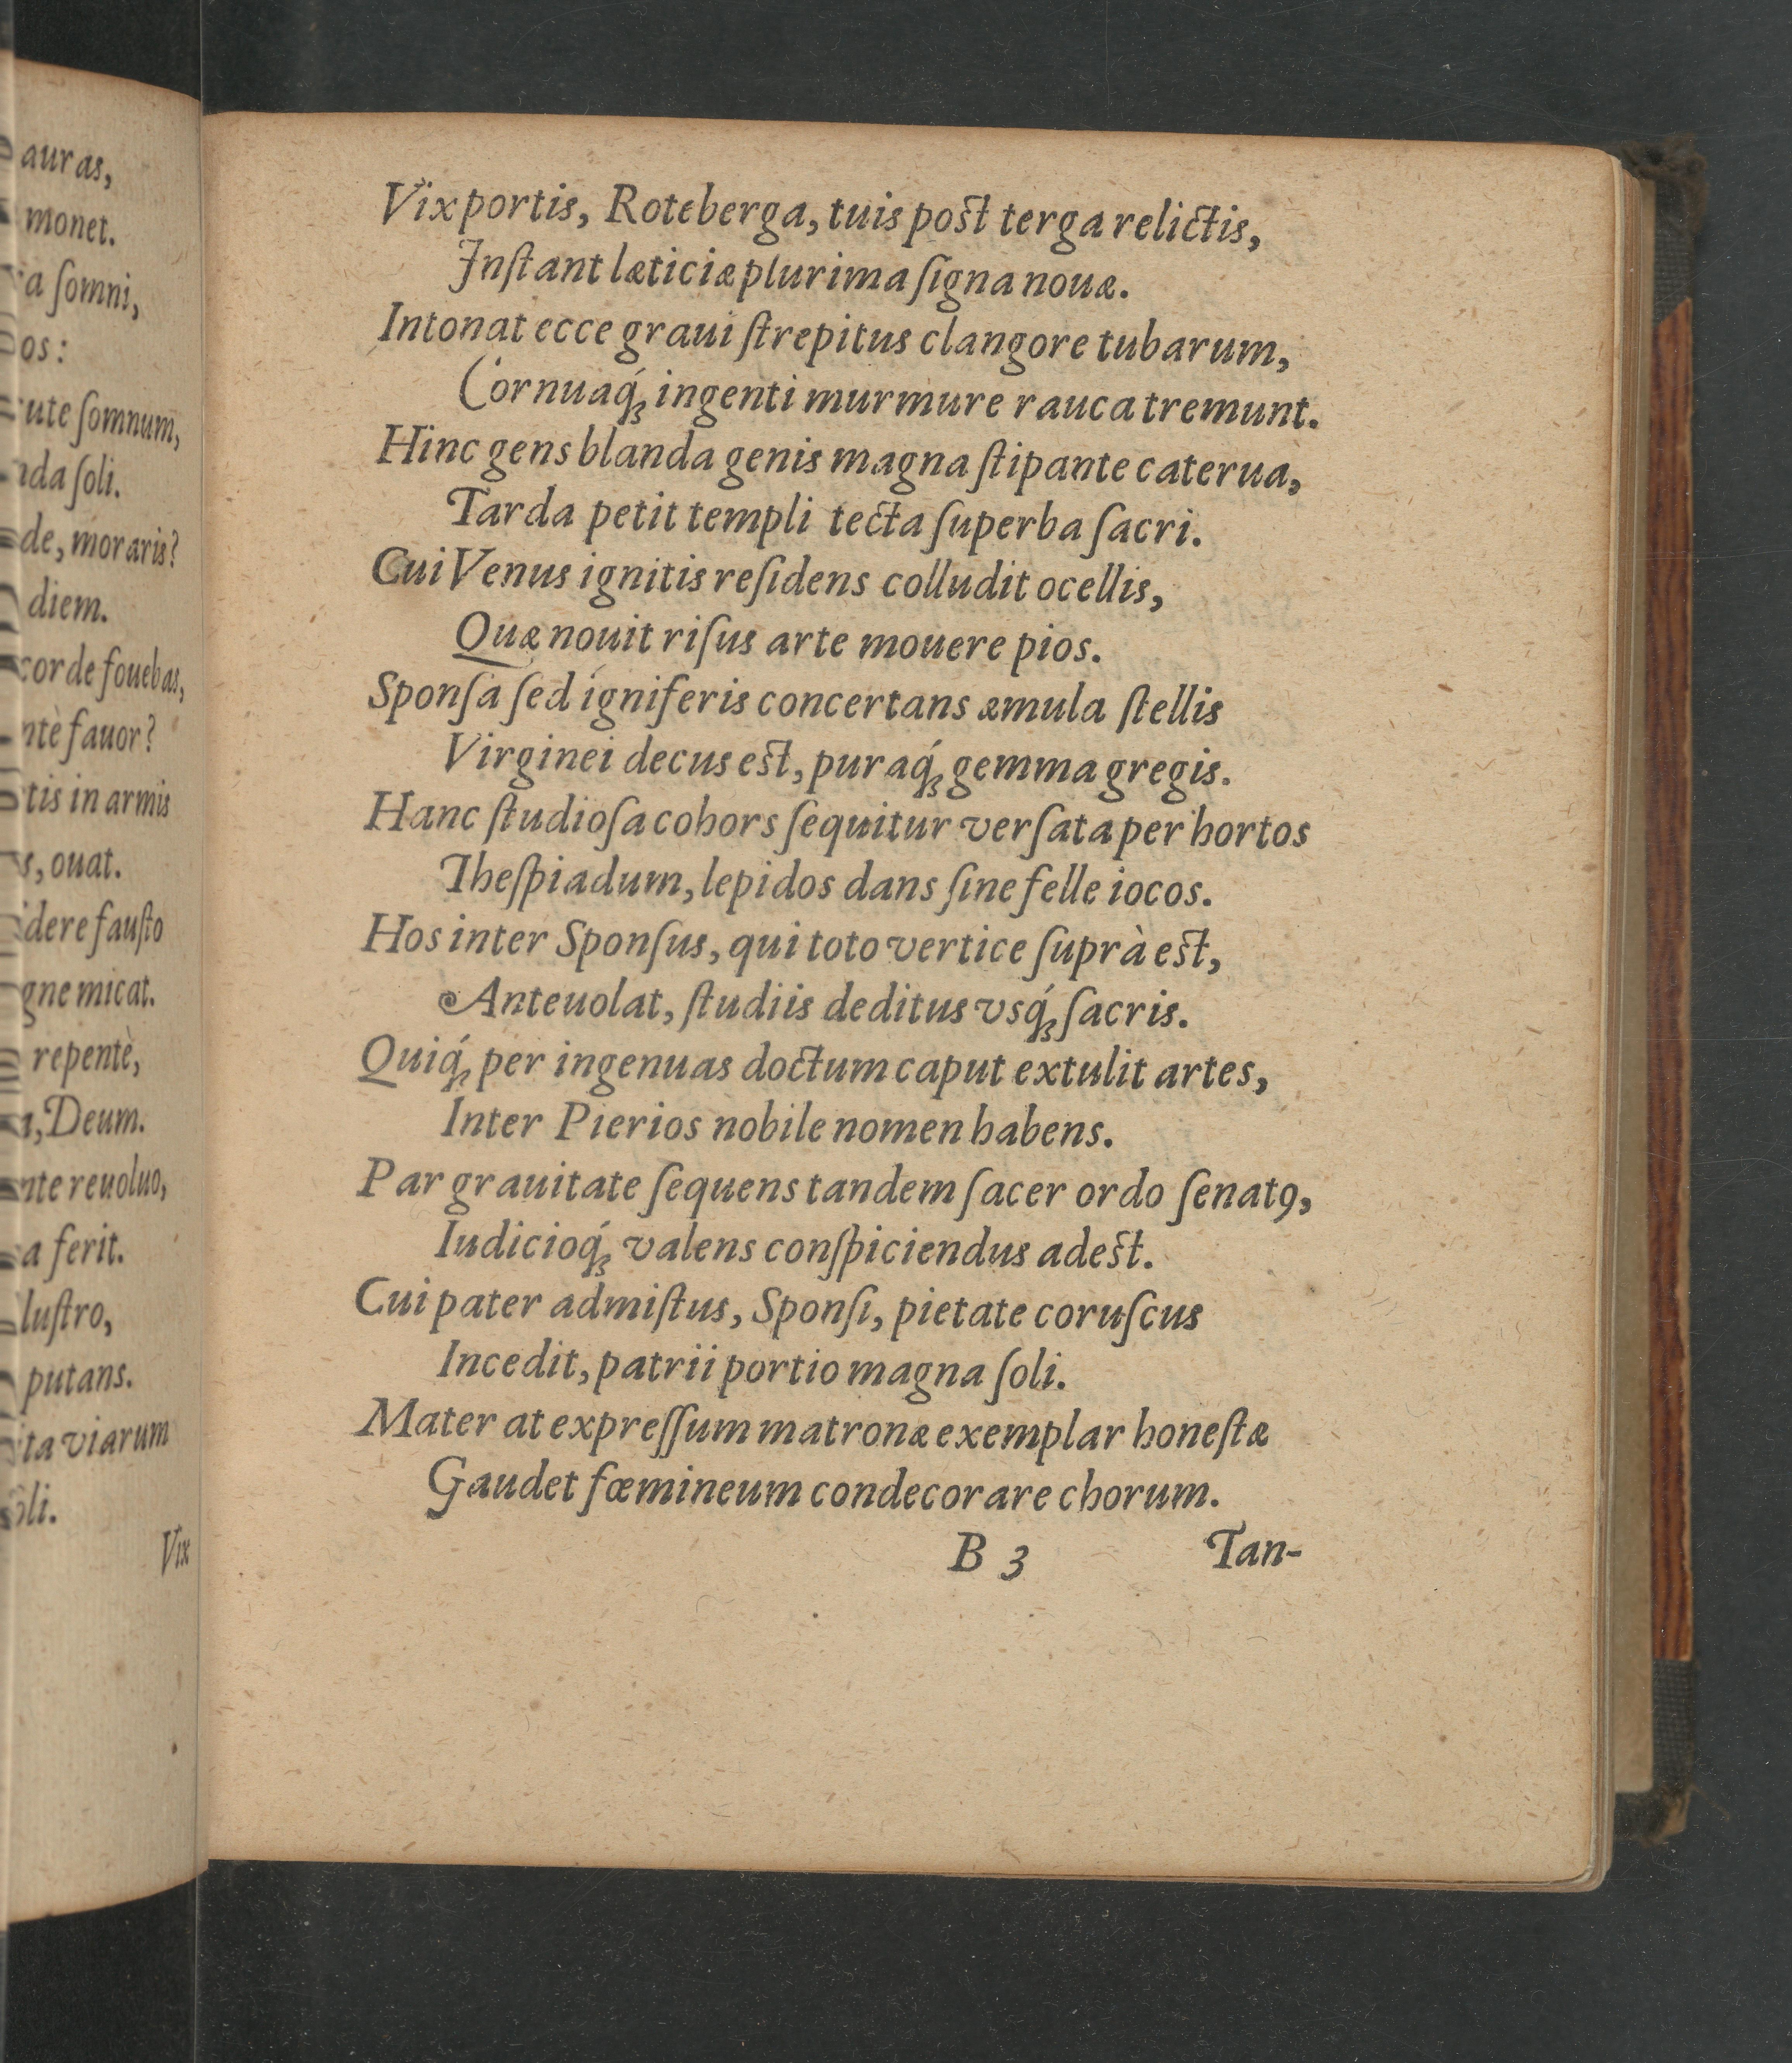 auras,
monet.
somni,
os:
somnum,
soli.
de, moraris?
diem.
corde fouebas,
fauor?
in armis
ouat.
fausto
micat.
repentè,
Deum.
reuoluo,
ferit.
lustro,
putans.
viarum
Vix
Vix portis, Roteberga, tuis post terga relictis,
Instant læticiæ plurima signa nouæ.
Intonat ecce graui strepitus clangore tubarum,
Cornuaq́; ingenti murmure rauca tremunt.
Hinc gens blanda genis magna stipante caterua,
Tarda petit templi tecta superba sacri.
Cui Venus ignitis residens colludit ocellis,
Quæ nouit risus arte mouere pios.
Sponsa sed igniferis concertans æmula stellis
Virginei decus est, puraq́; gemma gregis.
Hanc studiosa cohors sequitur versata per hortos
Thespiadum, lepidos dans sine felle iocos.
Hos inter Sponsus, qui toto vertice suprà est,
Anteuolat, studiis deditus vsq́; sacris.
Quiq́; per ingenuas doctum caput extulit artes,
Inter Pierios nobile nomen habens.
Par grauitate sequens tandem sacer ordo senatꝯ,
Iudicioq́; valens conspiciendus adest.
Cui pater admistus, Sponsi, pietate coruscus
Incedit, patrii portio magna soli.
Mater at expressum matronæ exemplar honestæ
Gaudet fœmineum condecorare chorum.
B 3 Tan-